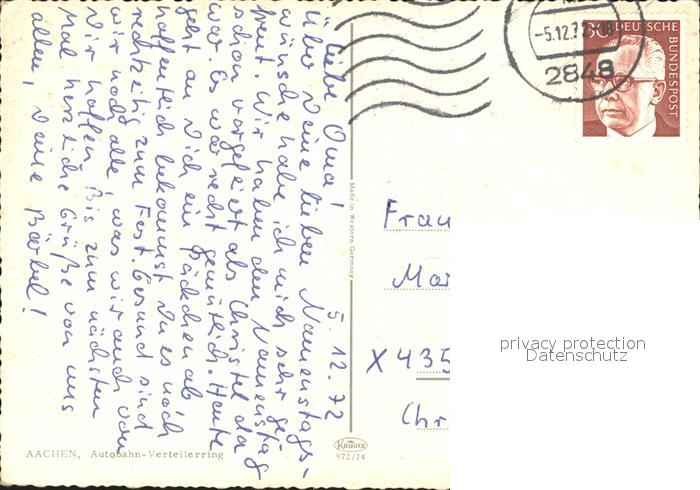 5.12.72
Liebe Oma!
Über Deine lieben Namenstags-
wünsche habe ich mich sehr ge-
freut. Wir haben den Namenstag
schon vorgefeiert als Christel da
war. Es war recht gemütlich. Heute
geht an Dich ein Päckchen ab,
hoffentlich bekommst Du es noch
rechtzeitig zum Fest. Gesund sind
wir noch alle, was wir auch von
Dir hoffen. Bis zum nächsten
Mal herzliche Grüße von uns
allen, Deine Bärbel!
AACHEN, Autobahn-Verteilerring
Made in Western Germany
KRÜGER
972/14
-5.12.72
2848
30
DEUTSCHE
BUNDESPOST
Frau
Mar
X 435
Chr
privacy protection
Datenschutz